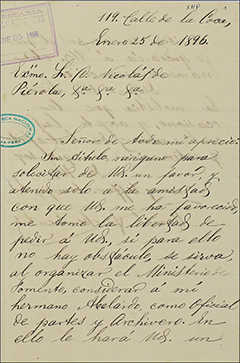 114. Calle de la Coca,
Enero 25 de 1896.
Exmo. Sr. D. Nicolás de
Piérola, &a &a &a
Señor de todo mi aprecio:
Sin título ninguno para
solicitar de US. un favor y
atenido solo a la amistad
con que US. me ha favorecido,
me tomo la libertad de
pedir á US. si para ello
no hay obstáculo, se sirva,
al organizar el Ministerio de
Fomento, considerar á mi
hermano Abelardo, como Oficial
de partes y Archivero. En
ello le hará US. un